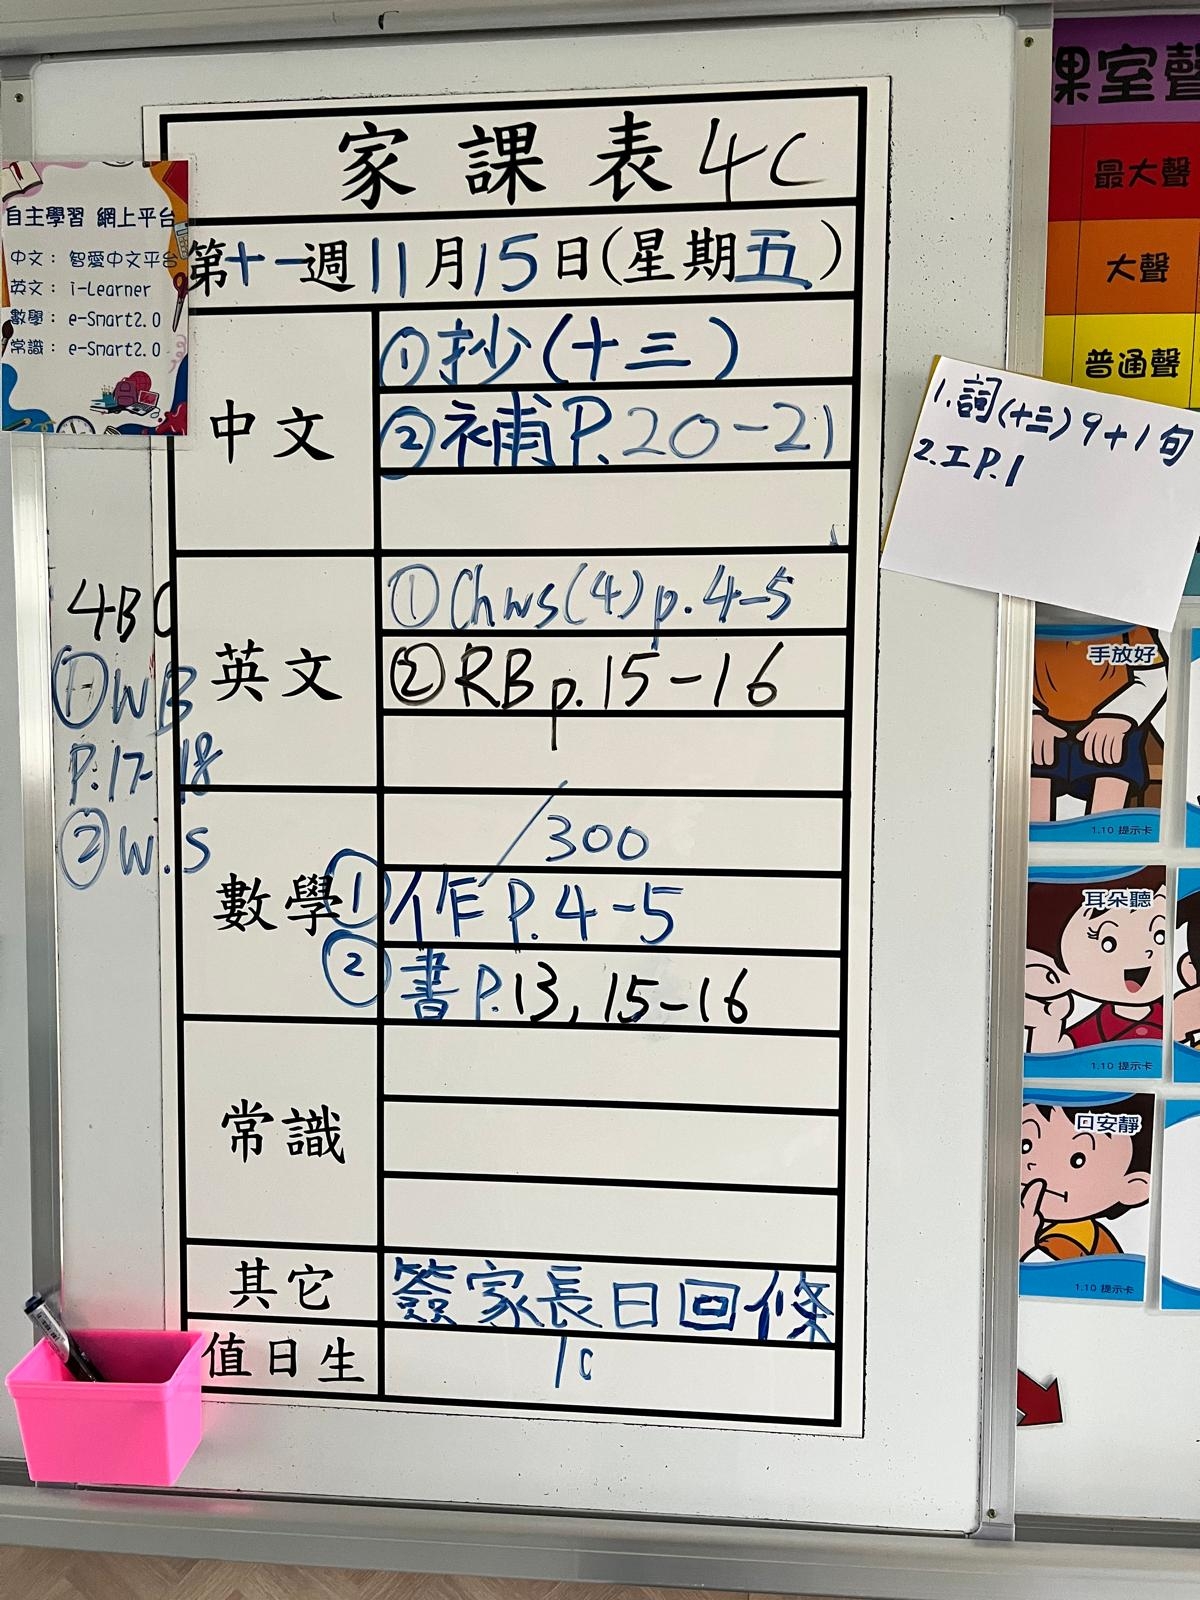 家課表 4C
第十一週 11月15日(星期五)
中文
①抄(十三)
②補P.20-21
英文
①Chws(4)p.4-5
②RB p.15-16
數學
/300
①作P.4-5
②書P.13, 15-16
常識
其它
簽家長日回條
值日生
1c
自主學習 網上平台
中文： 智愛中文平台
英文： i-Learner
數學： e-Smart2.0
常識： e-Smart2.0
4B
①WB
P.17-18
②W.S
1.詞(十三)9+1句
2.工P.1
課室聲
最大聲
大聲
普通聲
手放好
1.10 提示卡
耳朵聽
1.10 提示卡
口安靜
1.10 提示卡